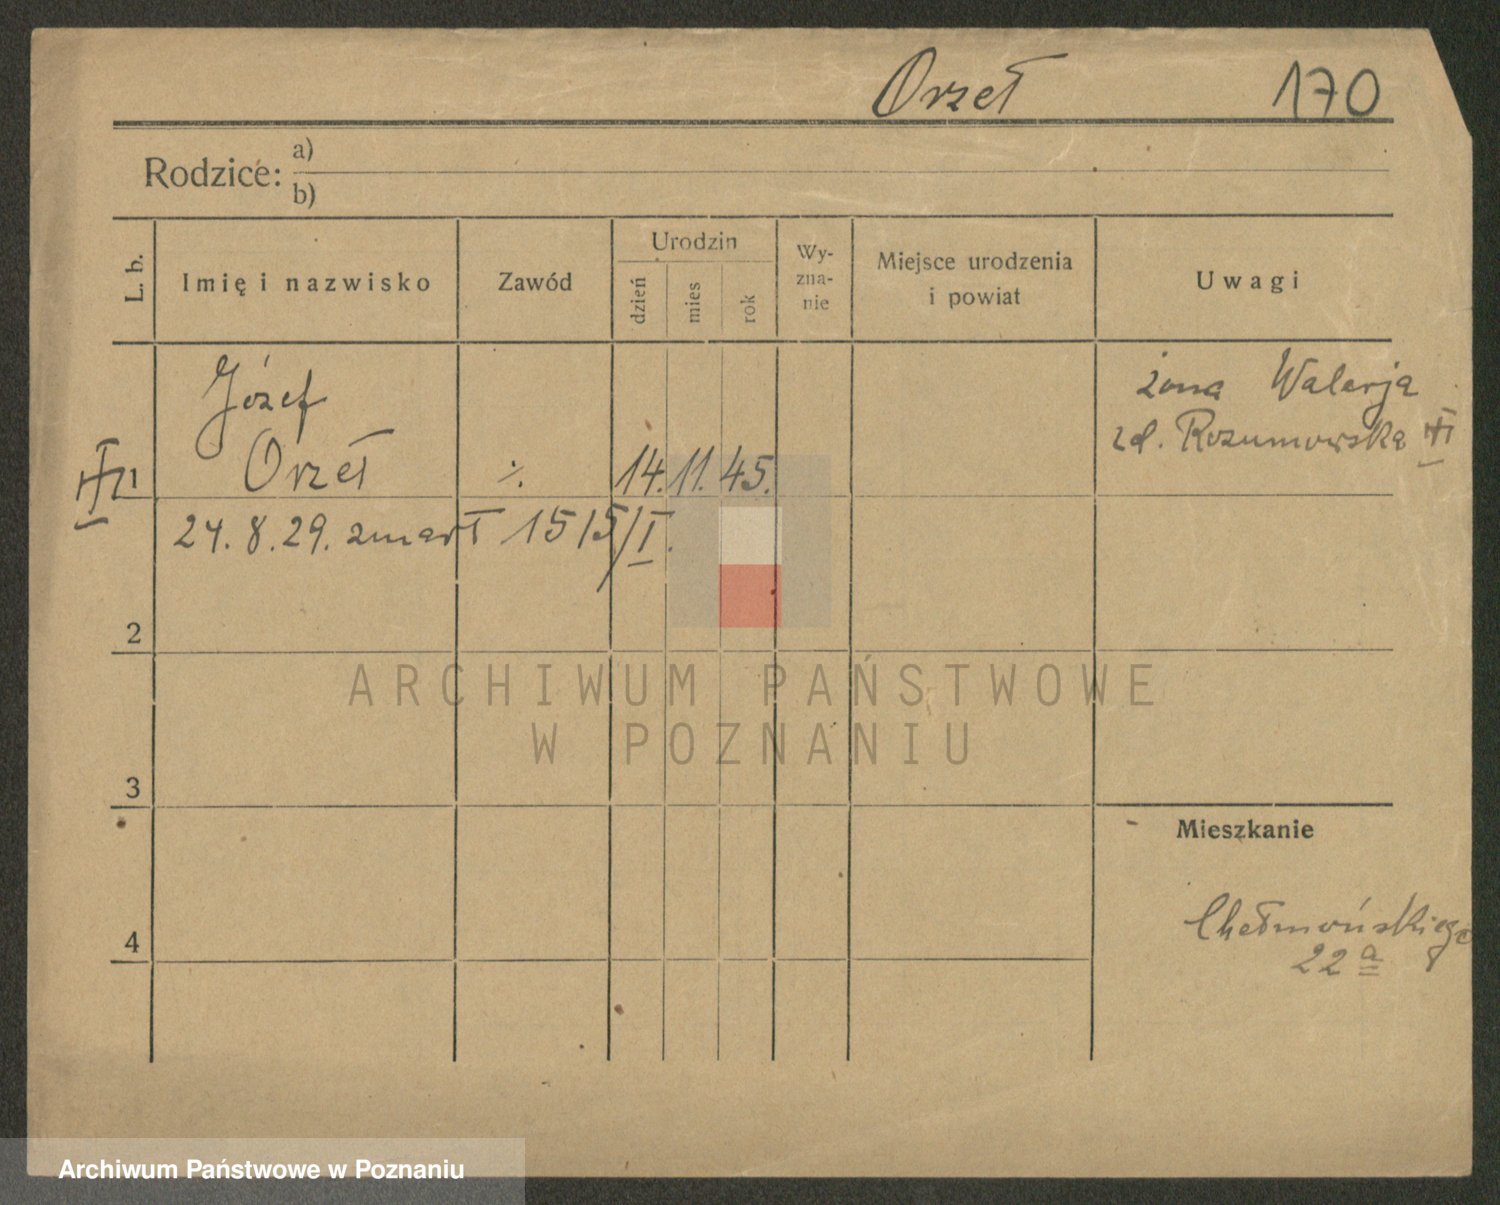 Orzeł 170
Rodzice: a)
b)
L. b. Imię i nazwisko Zawód Urodzin dzień mies rok Wy-zna-nie Miejsce urodzenia i powiat Uwagi
Józef
żona Walerja
zd. Rozumowska
1 Orzeł ./. 14. 11. 45.
24. 8. 29. zmarł 1515/I.
2
3
Mieszkanie
Chełmońskiego
22 a
4
ARCHIWUM PAŃSTWOWE
W POZNANIU
Archiwum Państwowe w Poznaniu